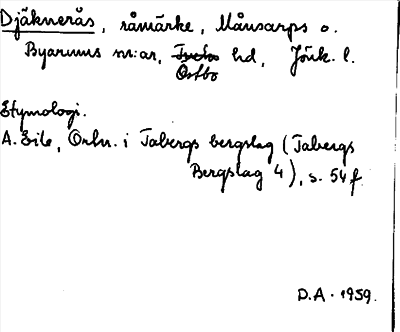 Djäknerås, råmärke, Månsarps o.
Byarums sn:ar, Tveta hd, Jönk. l.
Östbo
Etymologi.
A. Ejle, Ortn. i Tabergs bergslag (Tabergs
Bergslag 4), s. 54 f.
D.A. 1959.